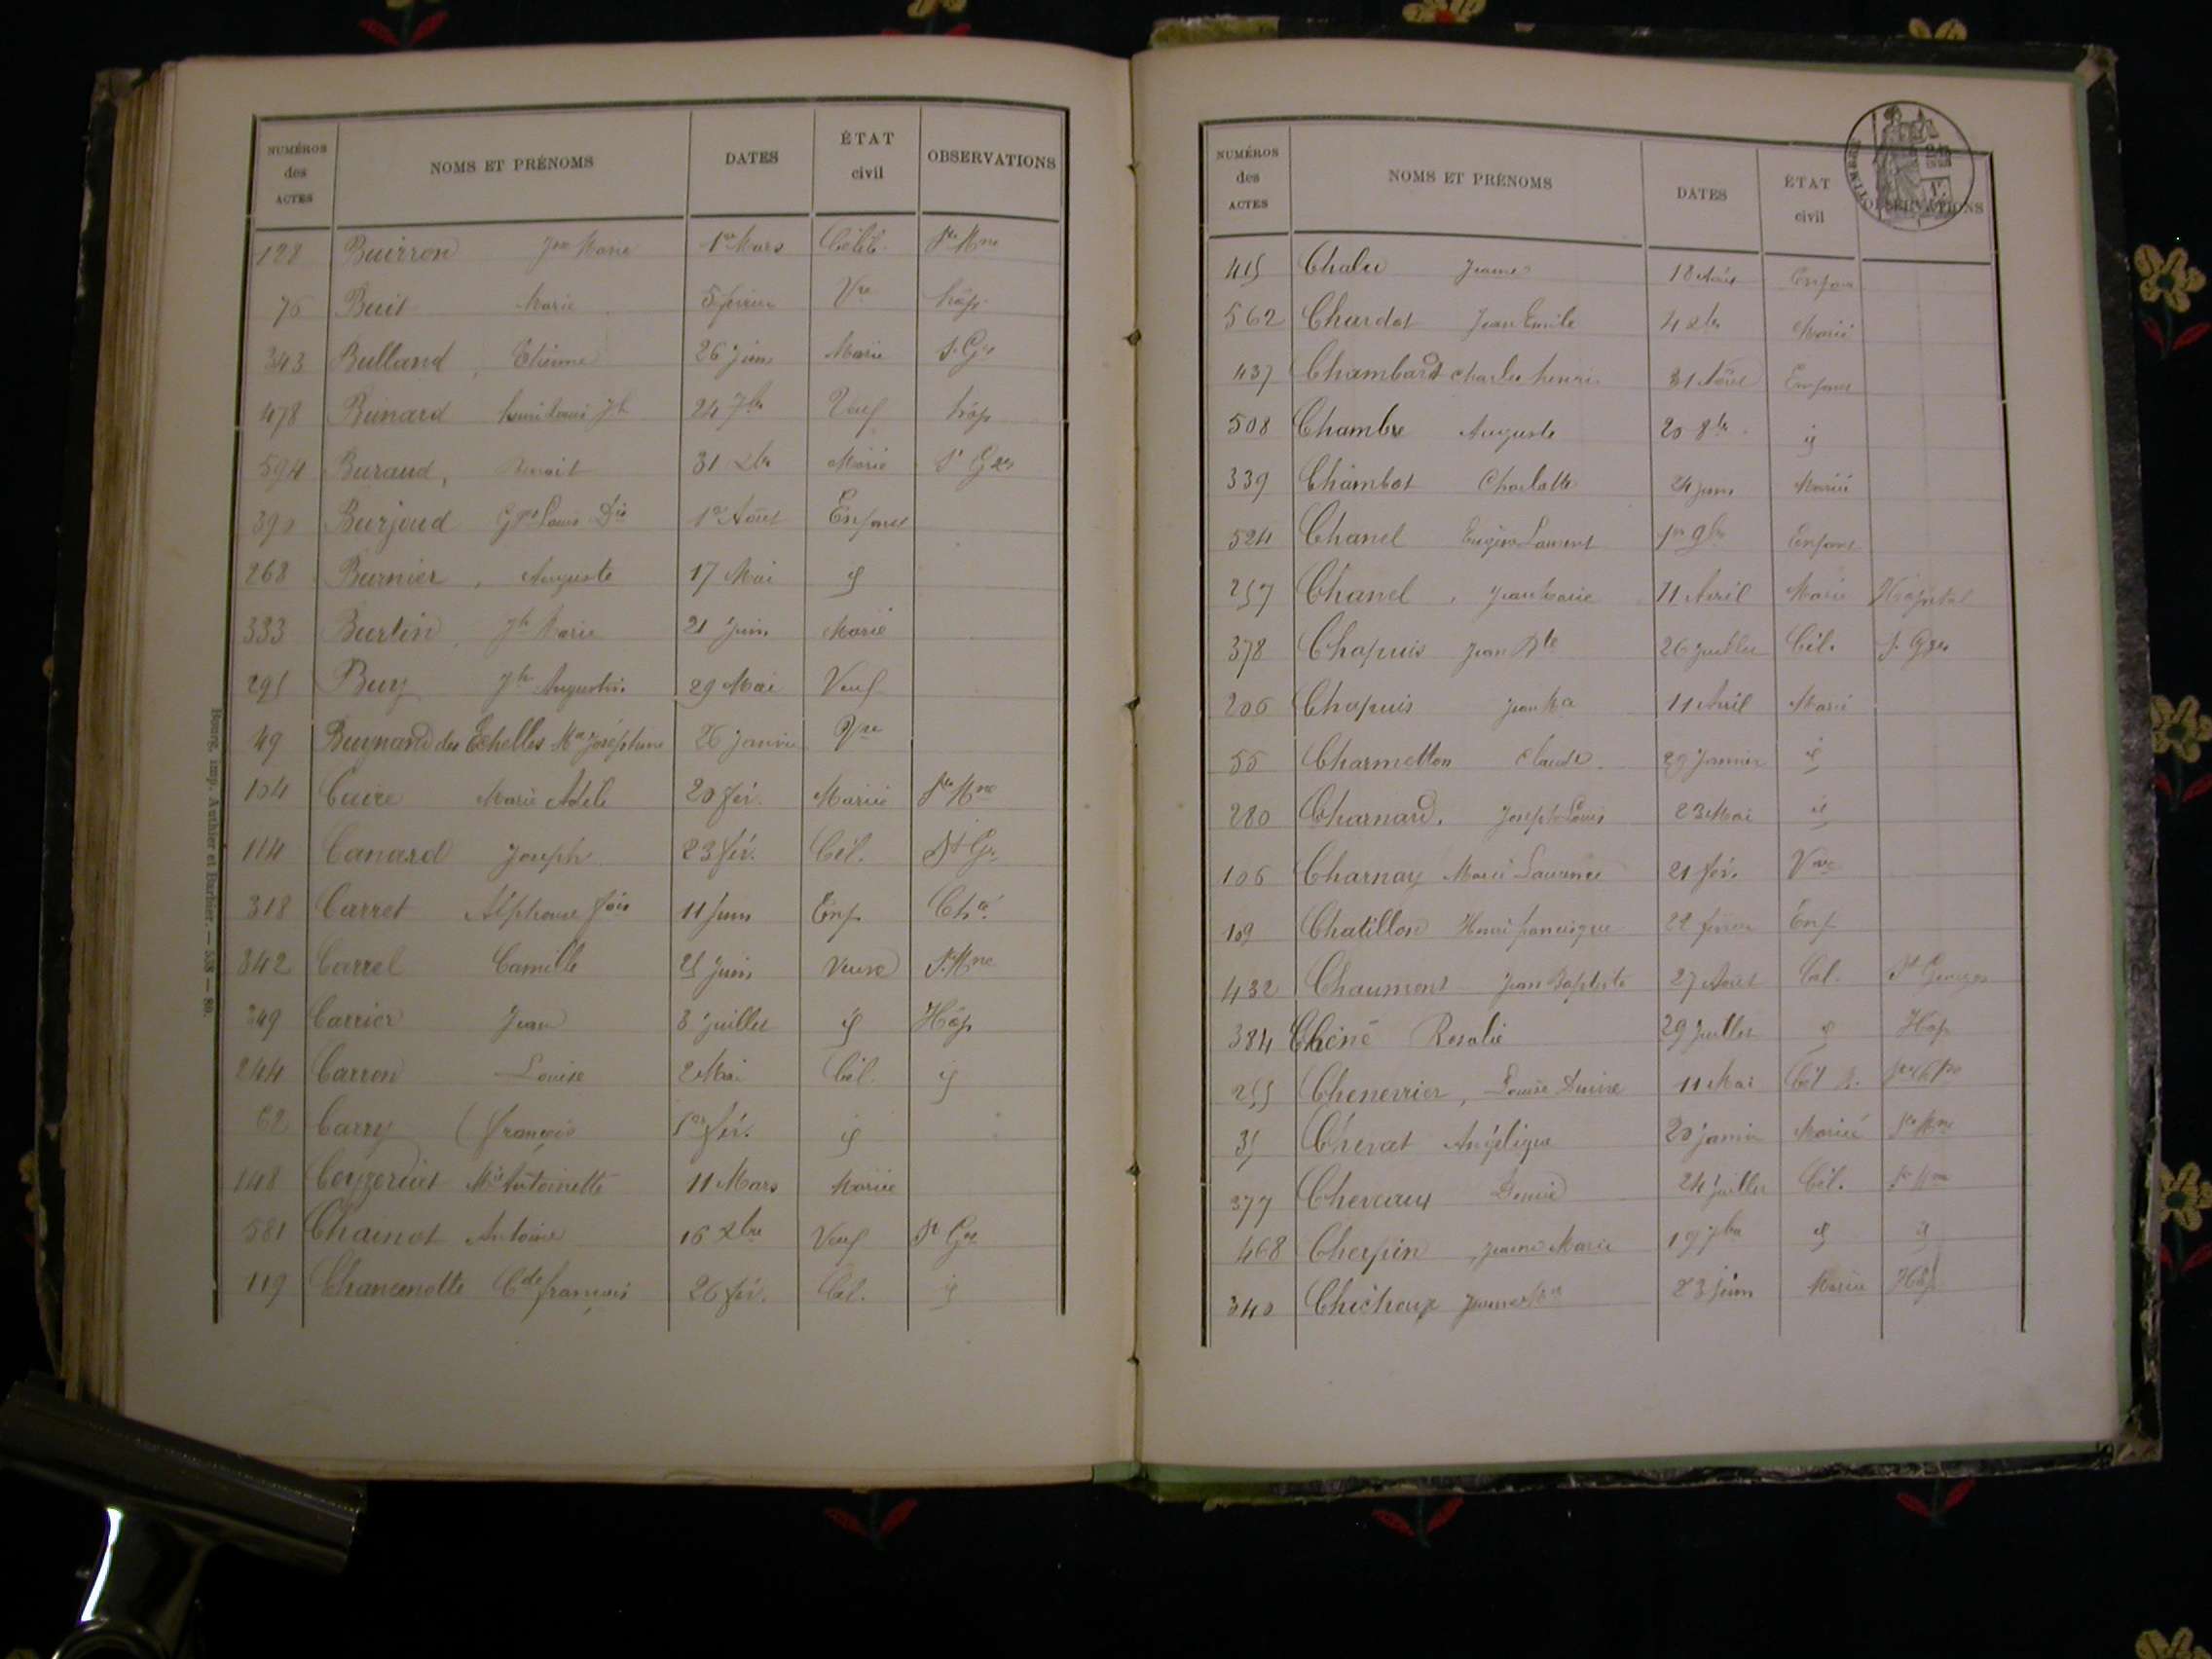 NUMÉROS des ACTES NOMS ET PRÉNOMS DATES ÉTAT civil OBSERVATIONS
128 Buirron Jne Marie 1er Mars Célib. Ste Mne
76 Buit Marie 5 février Vve hôp
343 Bulland, Etienne 26 juin Marié St Ges
478 Bunard 24 7bre Veuf hôp
594 Buraud, Benoit 31 Xbre Marié St Ges
390 Burjoud Louis 1er Août Enfant
268 Burnier, Auguste 17 Mai id
333 Burtin, Jh Marie 21 juin Marié
295 Buy Jh Augustin 29 Mai Veuf
49 Buynard des Echelles Ma Joséphine 26 janvier Vve
104 Caire Marie Adèle 20 fév. Mariée Ste Mne
114 Canard Joseph 23 fév. Cél. St Ges
318 Carret Alphonse fois 11 juin Enf Chté
342 Carrel Camille 25 juin Veuve Ste Mne
349 Carrier Jean 3 juillet id Hôp
244 Carron Louise 2 Mai Cél. id
62 Carry françois 1er fév. id
148 Mie Antoinette 11 Mars Mariée
581 Chainot Antoine 16 Xbre Veuf St Ges
119 Chancenotte Cde françois 26 fév. Cél. id
Bourg, imp. Authier et Barbier. — 538 — 89.
NUMÉROS des ACTES NOMS ET PRÉNOMS DATES ÉTAT civil OBSERVATIONS
TIMBRE
415 Chalu Jeanne 18 Août Enfant
562 Chardot Jean Emile 4 Xbre Marié
437 Chambard Charles henri 31 Août Enfant
508 Chambre Auguste 20 8bre id
339 Chambot Charlotte 24 juin Mariée
524 Chanel Eugène Laurent 1er 9bre Enfant
257 Chanel, Jean Marie 11 Avril Marié Hôpital
378 Chapuis Jean Bte 26 juillet Cél. St Ges
206 Chapuis Jean Ma 11 Avril Marié
55 Charmetton Claude 29 Janvier id
280 Charnard, Joseph Louis 23 Mai id
106 Charnay Marie Laurence 21 fév. Vve
109 Chatillon Henri francisque 22 février Enf
432 Chaumont Jean Baptiste 27 Août Cél. St Georges
384 Chêne Rosalie 29 juillet id Hop
255 Chenevrier, Louise 11 Mai Cél
35 Chevat Angélique 20 janvier Mariée Ste Mne
377 Cheveaux 24 juillet Cél. Ste Mne
468 Cherpin, Jeanne Marie 19 7bre id id
340 Chichoux Jeanne Mie 23 juin Mariée Hôp